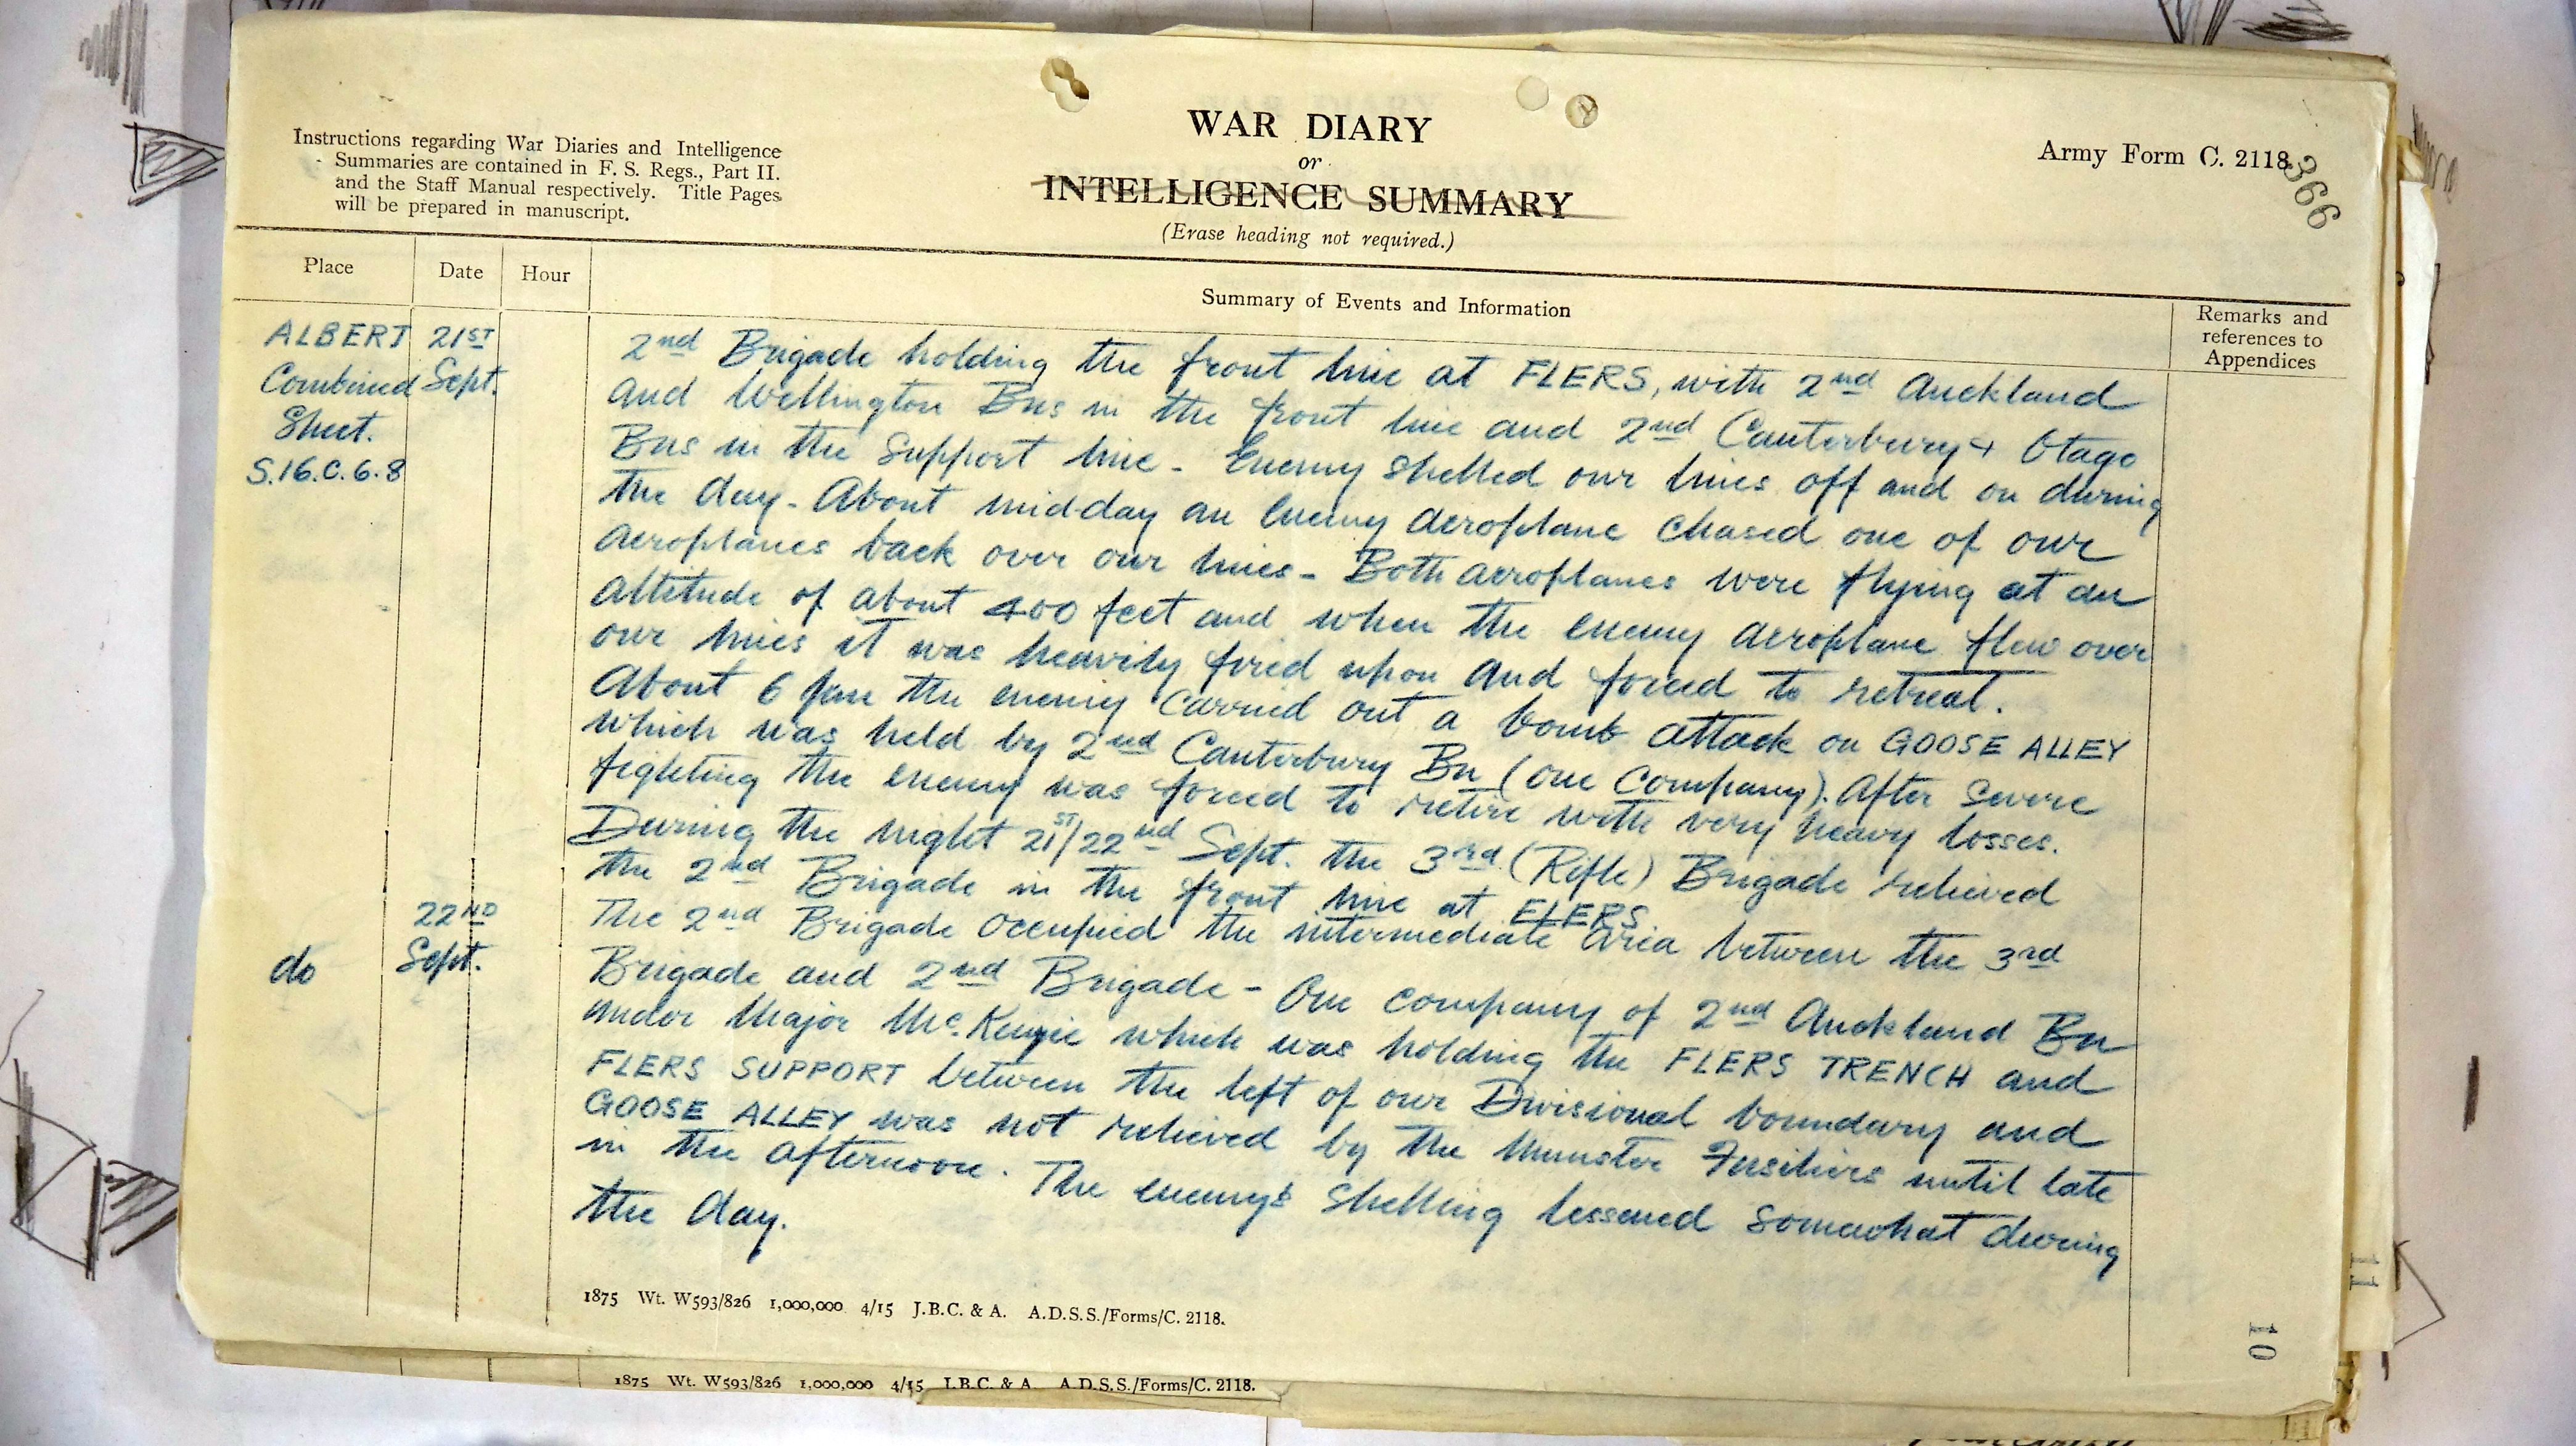 Instructions regarding War Diaries and Intelligence
Summaries are contained in F. S. Regs., Part II.
and the Staff Manual respectively. Title Pages
will be prepared in manuscript.
WAR DIARY
or
INTELLIGENCE SUMMARY
(Erase heading not required.)
Army Form C. 2118.
366
Place
Date
Hour
Summary of Events and Information
Remarks and
references to
Appendices
ALBERT
Combined
Sheet.
S.16.C.6.8
21ST
Sept.
2nd Brigade holding the front line at FLERS, with 2nd Auckland
and Wellington Bns in the front line and 2nd Canterbury + Otago
Bns in the support line - Enemy shelled our lines off and on during
the day - About mid-day an enemy aeroplane chased one of our
aeroplanes back over our lines - Both aeroplanes were flying at an
altitude of about 400 feet and when the enemy aeroplane flew over
our lines it was heavily fired upon and forced to retreat.
About 6 pm the enemy carried out a bomb attack on GOOSE ALLEY
which was held by 2nd Canterbury Bn (one Company). After severe
fighting the enemy was forced to retire with very heavy losses.
During the night 21ST/22nd Sept. the 3rd (Rifle) Brigade relieved
the 2nd Brigade in the front line at FLERS
do
22ND
Sept.
The 2nd Brigade occupied the intermediate area between the 3rd
Brigade and 2nd Brigade - One company of 2nd Auckland Bn
under Major McKenzie which was holding the FLERS TRENCH and
FLERS SUPPORT between the left of our Divisional boundary and
GOOSE ALLEY was not relieved by the Munster Fusiliers until late
in the afternoon. The enemy's shelling lessened somewhat during
the day.
1875 Wt. W593/826 1,000,000 4/15 J.B.C. & A. A.D.S.S./Forms/C. 2118.
10
11
1875 Wt. W593/826 1,000,000 4/15 J.B.C. & A. A.D.S.S./Forms/C. 2118.